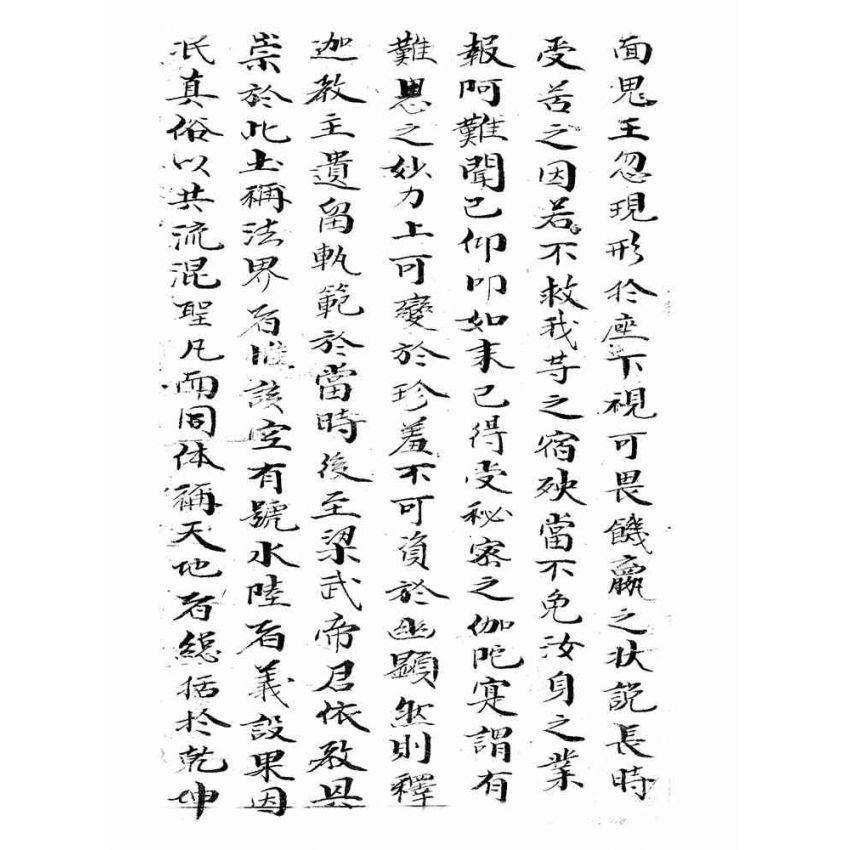 面鬼王忽現形於座下視可畏饑羸之狀說長時
受苦之因若不救我等之宿殃當不免汝身之業
報阿難聞已仰叩如来已得受秘密之伽陀寔謂有
難思之妙力上可變於珍羞不可資於幽顯然則釋
迦教主遺留軌範於當時後至梁武帝君依教興
崇於此土稱法界者該空有號水陸者義設果因
泯真俗以共流混聖凡而同体稱天地者總括於乾坤